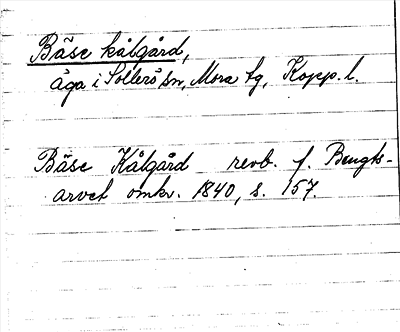 Bäse kålgård,
äga i Sollerö sn, Mora tg, Kopp. l.
Bäse Kålgård revb. f. Bengts-
arvet omkr. 1840, s. 157.